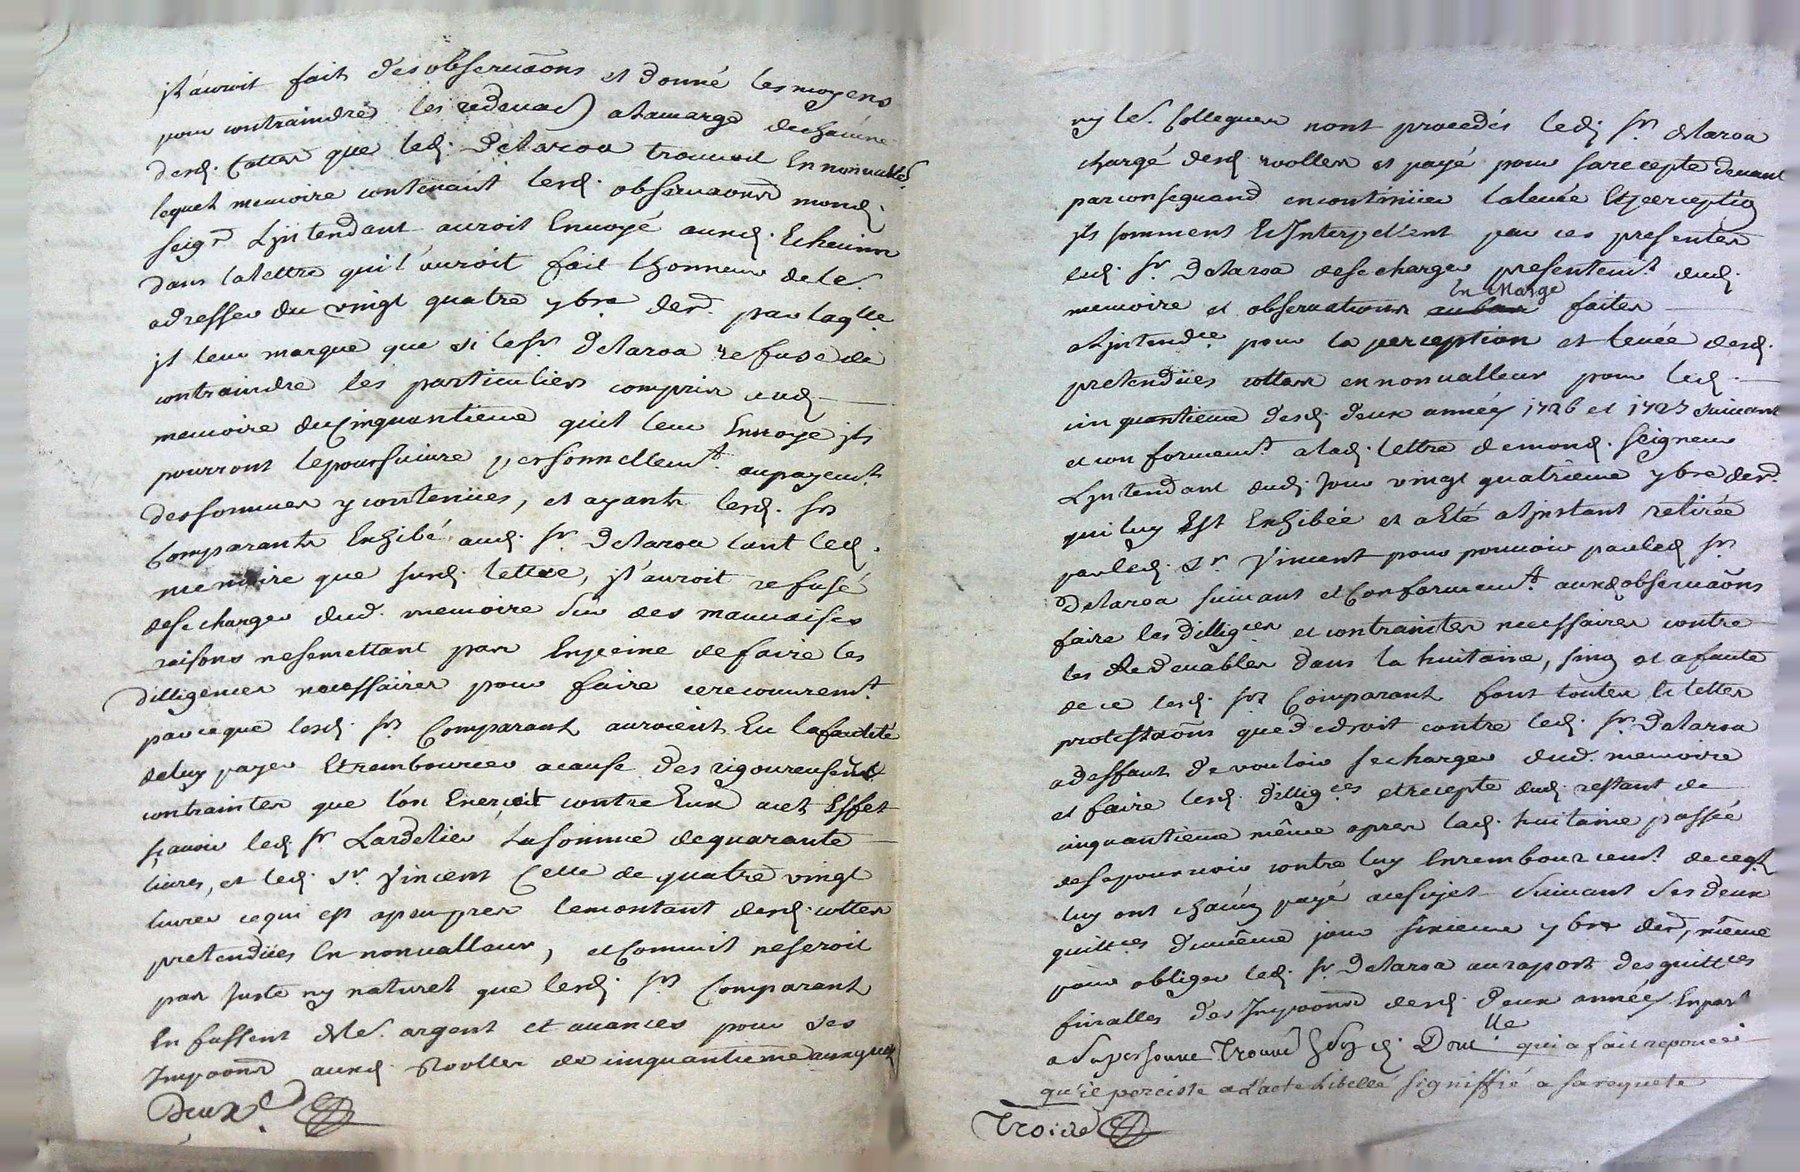 jl auroit fait des observaõns et donné les moyens
pour contraindre les redevab) a la marge de chacune
desd. Cottes que led. Delaroa trouvoit En nonvalle.
lequel memoire contenant lesd. observaons mond.
seigr. L'jntendant auroit Envoyé auxd. Echevins
dans la lettre qu'il auroit fait lhonneur de les
adresser du vingt quatre ybre der. par laqlle.
jl leur marque que si le sr. Delaroa refuse de
contraindre les particuliers compris aud.
memoire du Cinquantieme qu'il leur Envoye jls
pourront le poursuivre personnellemt. au payemt.
des sommes y contenües, et ayant lesd. srs
Comparants Exhibé aud. sr. Delaroa tant led.
memoire que susd. lettre, jl auroit refusé
de se charger dud. memoire sur des mauvaises
raisons ne se mettant pas En peine de faire les
dilligences necessaires pour faire ce recouvremt.
parce que lesd. srs Comparant auroient Eu la facilité
de luy payer Et rembourcer a cause des rigoureuses
contraintes que l'on Exerceit contre Eux a cet Effet
sçavoir led. sr Lardelier La somme de quarante
livres, et led. sr. Vincent Celle de quatre vingt
livres ce qui est a peu pres le montant desd. cottes
pretendües En nonvalleur, et Comme jl ne seroit
pas Juste ny naturel que lesd. srs Comparant
En fussent de ls. argent et avances pour des
Impoons auxd. Roolles de cinquantieme auxquels
Deux.
ny ls. Collegues nont procedés led. sr. Delaroa
chargé desd. roolles et payé pour sa recepte devant
par consequand en continüer la levée Et perceptiõ
jls somment Et Jnterpellent par ces presentes
led. sr. Delaroa de se charger presentemt. dud.
En Marge
memoire et observations au bas faites
a L'jntendce. pour la perception et levée desd.
pretendües cottes en nonvalleur pour led.
cinquantieme desd. deux années 1726 et 1727 suivant
et conformemt. a lad. lettre de mond. seigneur
L'jntendant dud. jour vingt quatrieme ybre der.
qui luy Est Exhibée et a Eté a l'jnstant retirée
par led. sr. Vincent pour pouvoir par led. sr
Delaroa suivant et Conformemt. auxd observaõns
faire les dilligces et contraintes necessaires contre
les Redevables dans la huitaine, sinq et a faute
de ce lesd. srs Comparant font toutes les telles
protestaõns que de droit contre led. sr. Delaroa
a deffaut de vouloir se charger dud. memoire
et faire lesd. dilligces et recepte dud. restant de
cinquantieme même apres lad. huitaine passée
de se pourvoir contre luy En rembourcemt. de ce qil
luy ont chacun payé a ce sujet suivant ses deux
quittces du même jour sixieme ybre der., même
pour obliger led. sr. Delaroa au raport des quittces
finalles des Impoons desd. deux années En parl.
a sa personne Trouvé En son d. Domlle qui a fait reponce
qu'il perciste a L'acte Libellé signiffié a sa requete
Trois